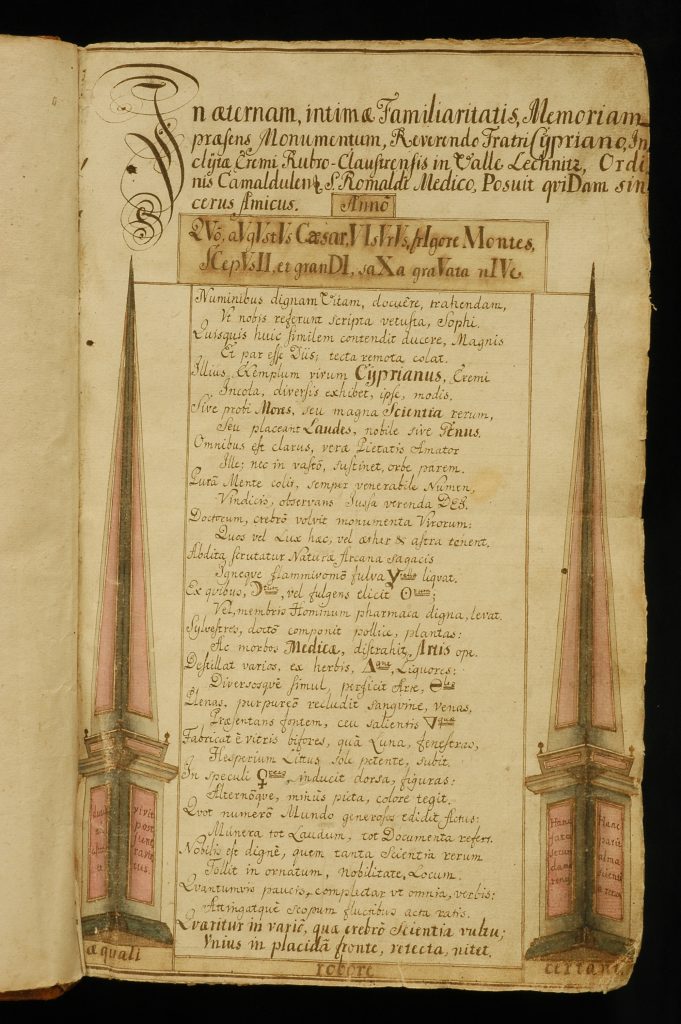 In æternam, intimæ Familiaritatis, Memoriam
præsens Monumentum, Reverendo Fratri Cÿpriano, In
clÿtæ Eremi Rubro-Claustrensis in Valle Lechnitz, Ordi
nis Camaldulens. S. Romaldi Medico, Posuit qviDam sin
cerus Amicus. Annô
QVô, aVgVstVs Cæsar, VIsVrVs, frIgore Montes,
SCepVsII, et granDI, saXa graVata nIVe.
Numinibus dignam Vitam, docuêre, trahendam,
Vt nobis referunt scripta vetusta, Sophi.
Quisquis huic similem contendit ducere, Magnis
Et par esse Diis; tecta remota colat.
Illius, Exemplum virum Cÿprianus, Eremi
Incola, diversis exhibet, ipse, modis.
Sive probi Mores, seu magna Scientia rerum,
Seu placeant Laudes, nobile sive Genus.
Omnibus est clarus, veræ Pietatis Amator
Ille; nec in vastô, sustinet, orbe parem.
Purâ Mente colit, semper venerabile Numen,
Vindicis, observans Jussa verenda DEI.
Doctorum, crebrô volvit monumenta Virorum:
Quos vel Lux hæc; vel æther & astra tenent.
Abdita scrutatur Naturæ Arcana sagacis
Igneque flammivomô fulva liqvat.
Ex quibus, vel fulgens elicit
Vel, membris Hominum pharmaca digna, levat.
Sÿlvestres, doctô componit pollice, plantas:
Ac morbos Medicæ, distrahit, Artis ope.
Destillat varios, ex herbis, Liquores:
Diversosque simul, perficit Arte,
Plenas, purpureô recludit sangvine, venas,
Præsentans fontem, ceu salientis
Fabricat è vitris bifores, quâ Luna, fenestras,
Hesperium Littus Sole petente, subit.
In speculi inducit dorsa, figuras:
Alternôque, minùs picta, colore tegit.
Quot numerô Mundo generosos edidit actus:
Munera tot Laudum, tot Documenta refert.
Nobilis est dignè, quem tanta Scientia rerum
Tollit in ornatum, nobilitate, Locum.
Qvantumvis paucis, complectar vt omnia, verbis:
Attingatquè scopum fluctibus acta ratis.
Qværitur in variô, quæ crebrô Scientia vultu;
Vnius in placidâ fronte, retecta, nitet.
vivit
post
fune
ra vir
tus.
Hanc
fata
Hanc
æquali
robore
certant